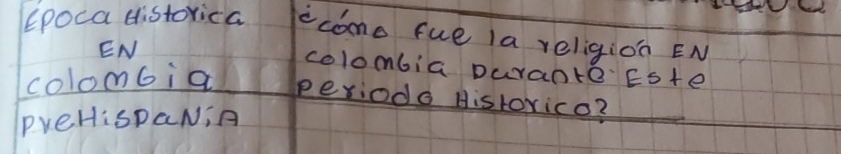 Epoca Historica
EN
colombia
¿cómo fue la religion EN
colombia Durante Este
periodo Historico?
preHispaNiA